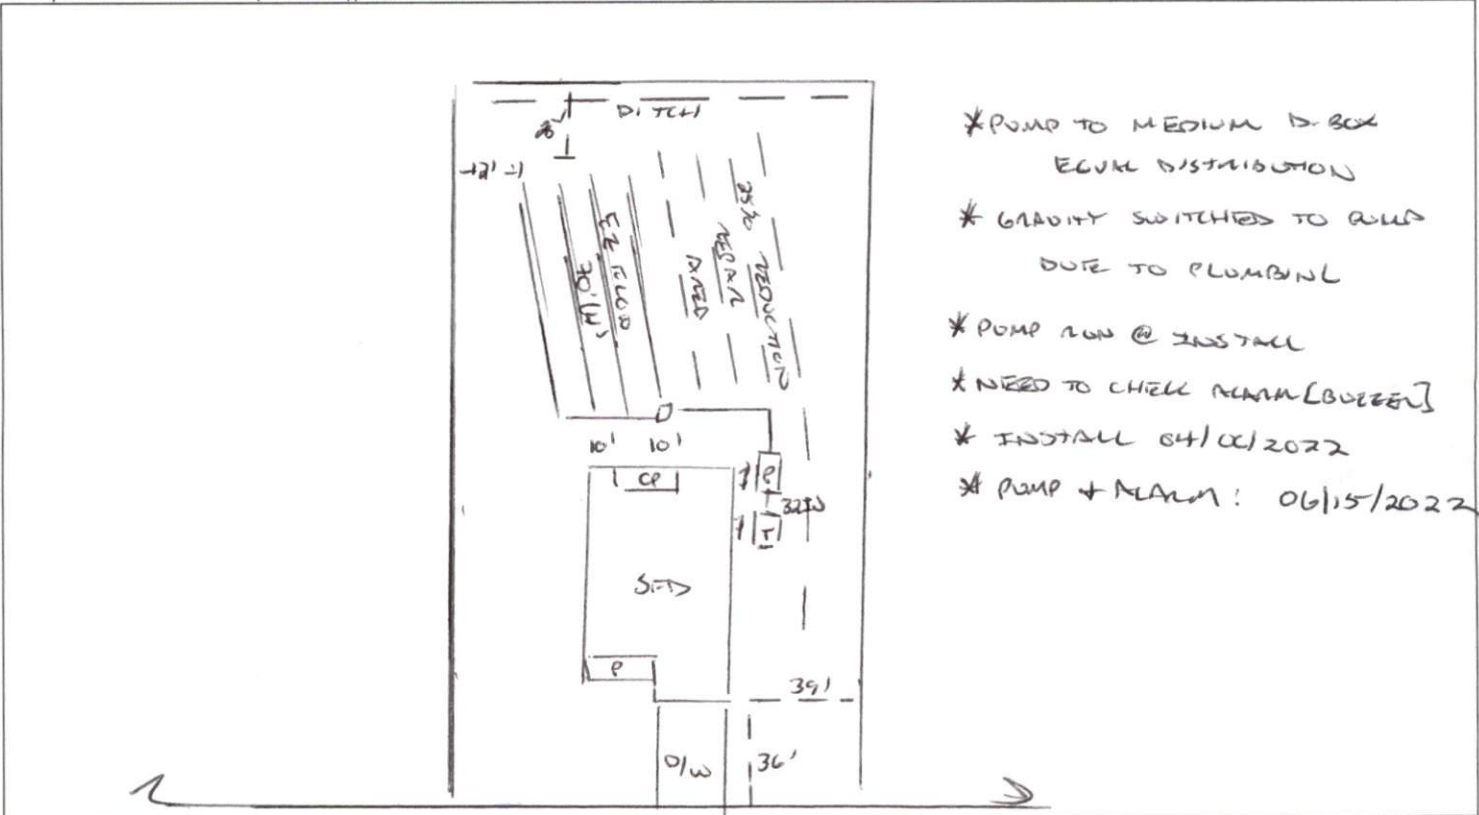 DITCH
EZ FLOW
AREA
REPAIR
25% REDUCTION
10' 10'
CP
P
T
SFD
P
39'
D/W
36'
* PUMP TO MEDIUM D-BOX
EQUAL DISTRIBUTION
* GRAVITY SWITCHED TO PUMP
DUE TO PLUMBING
* PUMP RUN @ INSTALL
* NEED TO CHECK ALARM [BUZZER]
* INSTALL 04/
* PUMP + ALARM: 06/15/2022